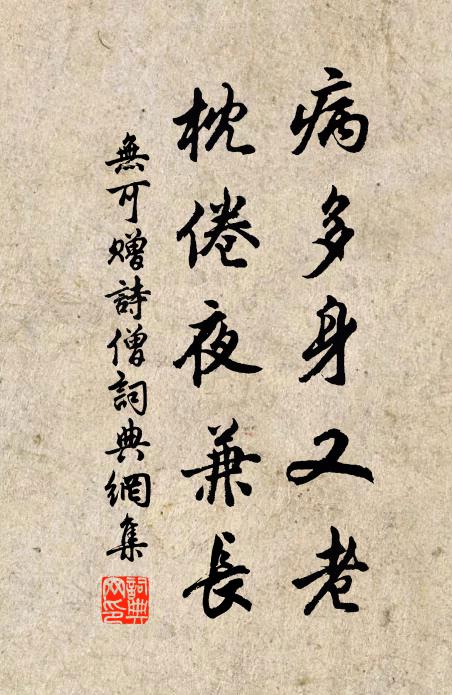 病多身又老
枕倦夜兼長
無可贈詩僧詞典網集
詞典
網印